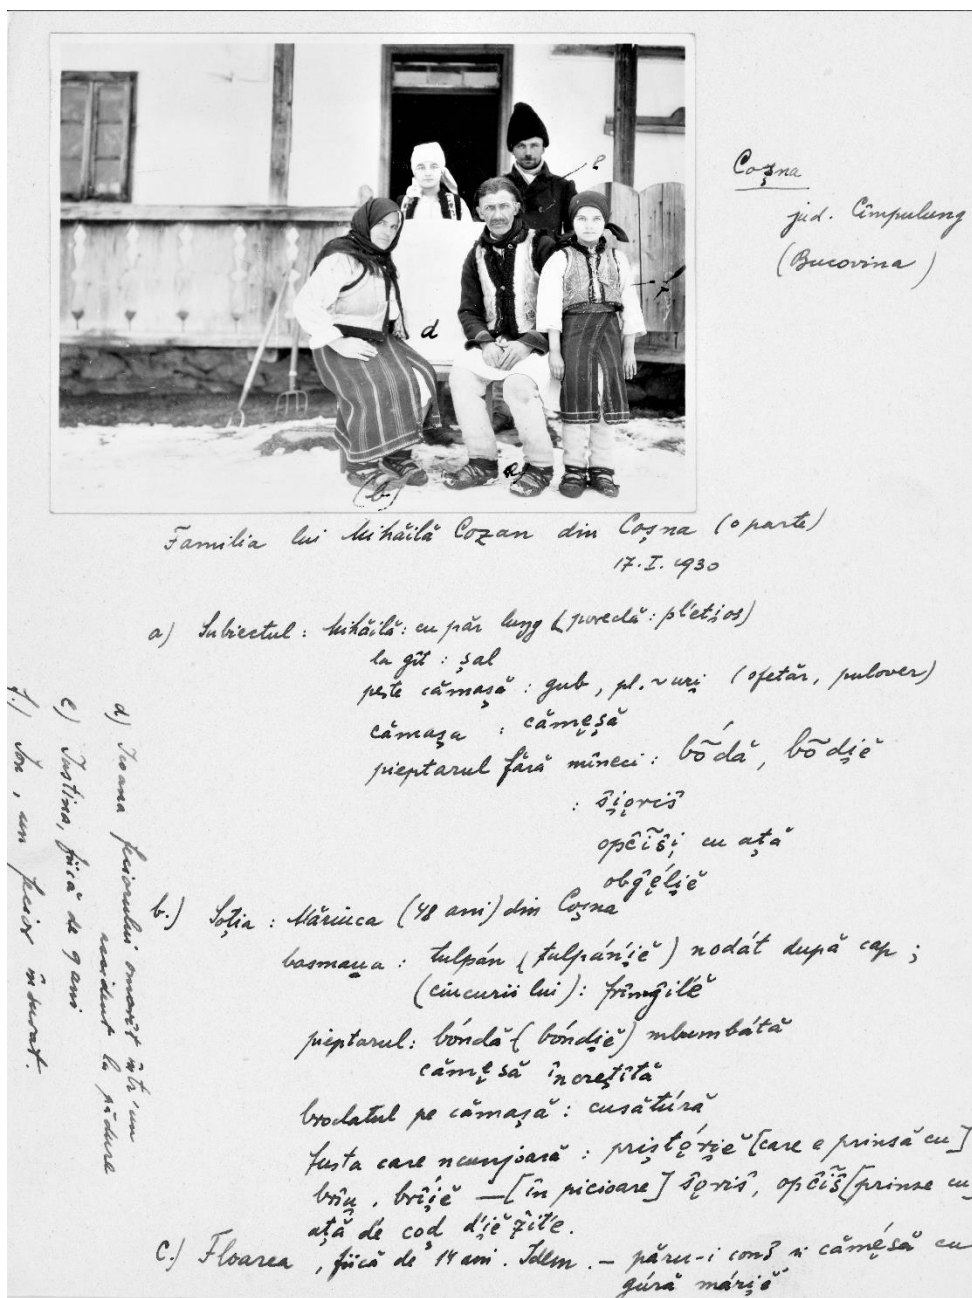 Coșna
jud. Cîmpulung
(Bucovina)
e
f
d
a
(b)
Familia lui Mihăilă Cozan din Coșna (o parte)
17.I.1930
a) Subiectul : Mihăilă : cu păr lung (poreclă : pletios)
la gît : șal
peste cămașă : gub, pl. ~ uri (sfetăr, pulover)
cămașa : cămeșă
pieptarul fără mîneci : bṍdă, bõdiĕ
: ŝioriŝ
opĉĩŝi cu ață
obĝéliĕ
b.) Soția : Măriuca (48 ani) din Coșna
basmaua : tulpán (tulpáńiĕ) nodát după cap ;
(ciucurii lui) : frîmĝilĕ
pieptarul : bóndă (bóndiĕ) mbumbátă
cămeșă încrețîtă
brodatul pe cămașă : cusătúră
fusta care nconjoară : priștóriĕ [care e prinsă cu]
brîu, brîiĕ — [în picioare] ŝoriŝ, opĉĩŝ [prinse cu
ață dé cod d'iĕ
c.) Floarea, fiică de 14 ani. Idem. – păru-i conŝ și cămeșă cu
gúră máriĕ
d) Ioana feciorului omorît într'un
accident la pădure
e) Iustina, fiică de 9 ani
f.) Ion, un fecior însurat.